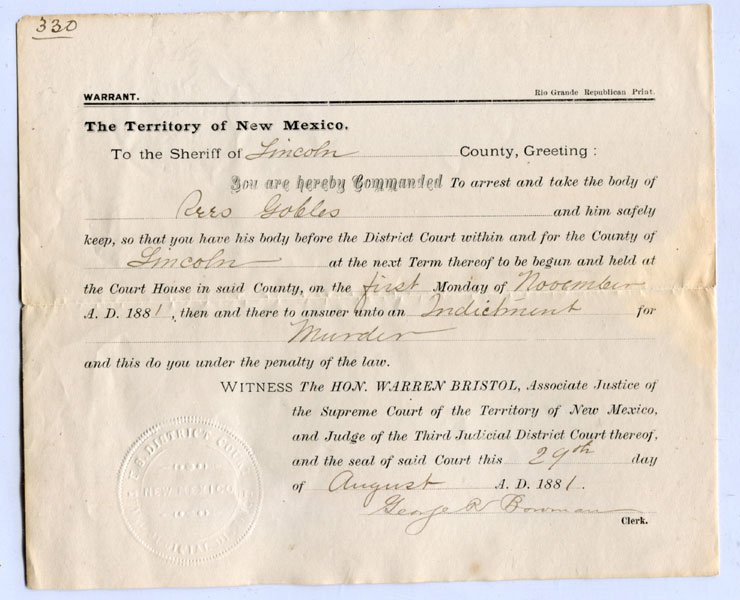 330
WARRANT. Rio Grande Republican Print.
The Territory of New Mexico.
To the Sheriff of Lincoln County, Greeting:
You are hereby Commanded To arrest and take the body of
Rees Gobles and him safely
keep, so that you have his body before the District Court within and for the County of
Lincoln at the next Term thereof to be begun and held at
the Court House in said County, on the first Monday of November
A. D. 1881, then and there to answer unto an Indictment for
Murder
and this do you under the penalty of the law.
WITNESS The HON. WARREN BRISTOL, Associate Justice of
the Supreme Court of the Territory of New Mexico,
and Judge of the Third Judicial District Court thereof,
and the seal of said Court this 29th day
of August A. D. 1881.
George R Bowman
Clerk.
DISTRICT COURT
NEW MEXICO